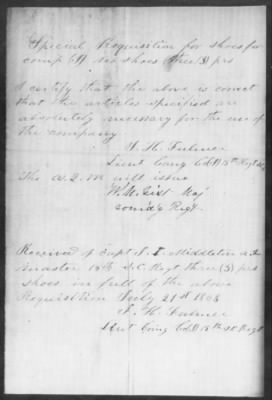 Special Requisition for shoes for
comp "A" six shoes three (3) prs
I certify that the above is correct
that the articles specified are
absolutely necessary for the use of
the company
H. Fulmer
Lieut Comg Co D 15th Regt
The A. Q. M will issue
W. M. Gist Maj
comd'g Regt.
Received of Capt S. I. Middleton
master 15th S. C. Regt three (3) prs
shoes in full of the above
Requisition July 21st 1863
H. Fulmer
Lieut Comg Co D 15th SC Regt